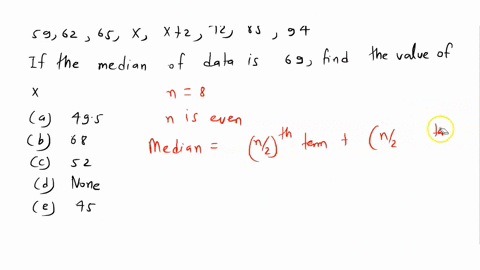 59, 62, 65, x, x+2, 72, 85, 94
If the median of data is 69, find the value of
x
n = 8
(a) 49.5
n is even
(b) 68
Median = (n/2)th term + (n/2
(c) 52
(d) None
(e) 45